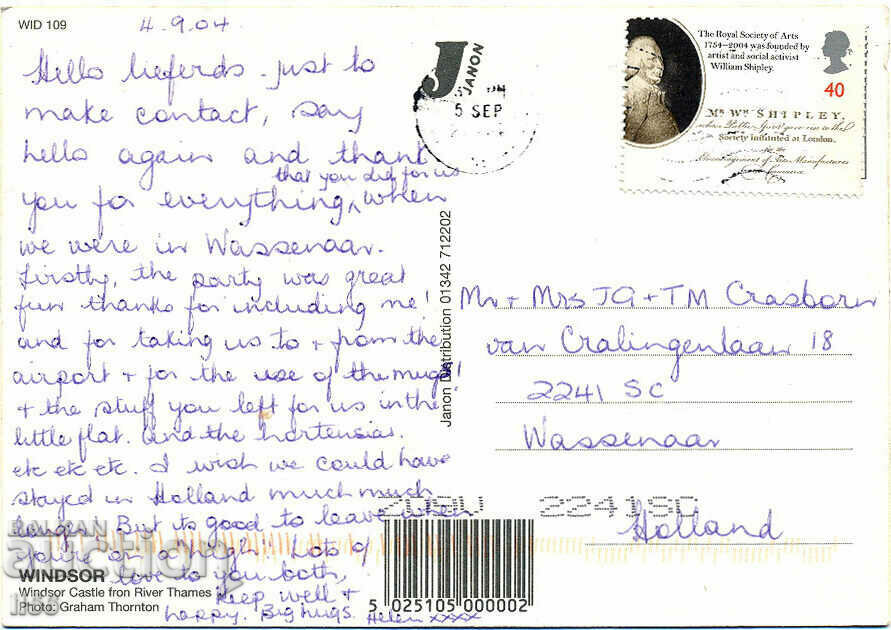 WID 109
4.9.04
Hello lieferds - just to
make contact, say
hello again and thank
that you did for us
you for everything, when
we were in Wassenaar.
Firstly, the party was great
fun thanks for including me!
and for taking us to + from the
airport + for the use of the mugs!
+ the stuff you left for us in the
little flat. And the hortensias.
etc etc etc. I wish we could have
stayed in Holland much much
longer. But its good to leave when
you're on a high!! Lots of
love to you both,
keep well +
happy. Big hugs. Helen xxxx
WINDSOR
Windsor Castle fron River Thames
Photo: Graham Thornton
J
JANON
5 SEP
Janon Distribution 01342 712202
The Royal Society of Arts
1754–2004 was founded by
artist and social activist
William Shipley.
40
Mr. Wm SHIPLEY,
Society instituted at London.
Mr + Mrs JG + TM Crasborn
van Cralingenlaan 18
2241 SC
Wassenaar
Holland
5 025105 000002
BALKAN
auction
1:58